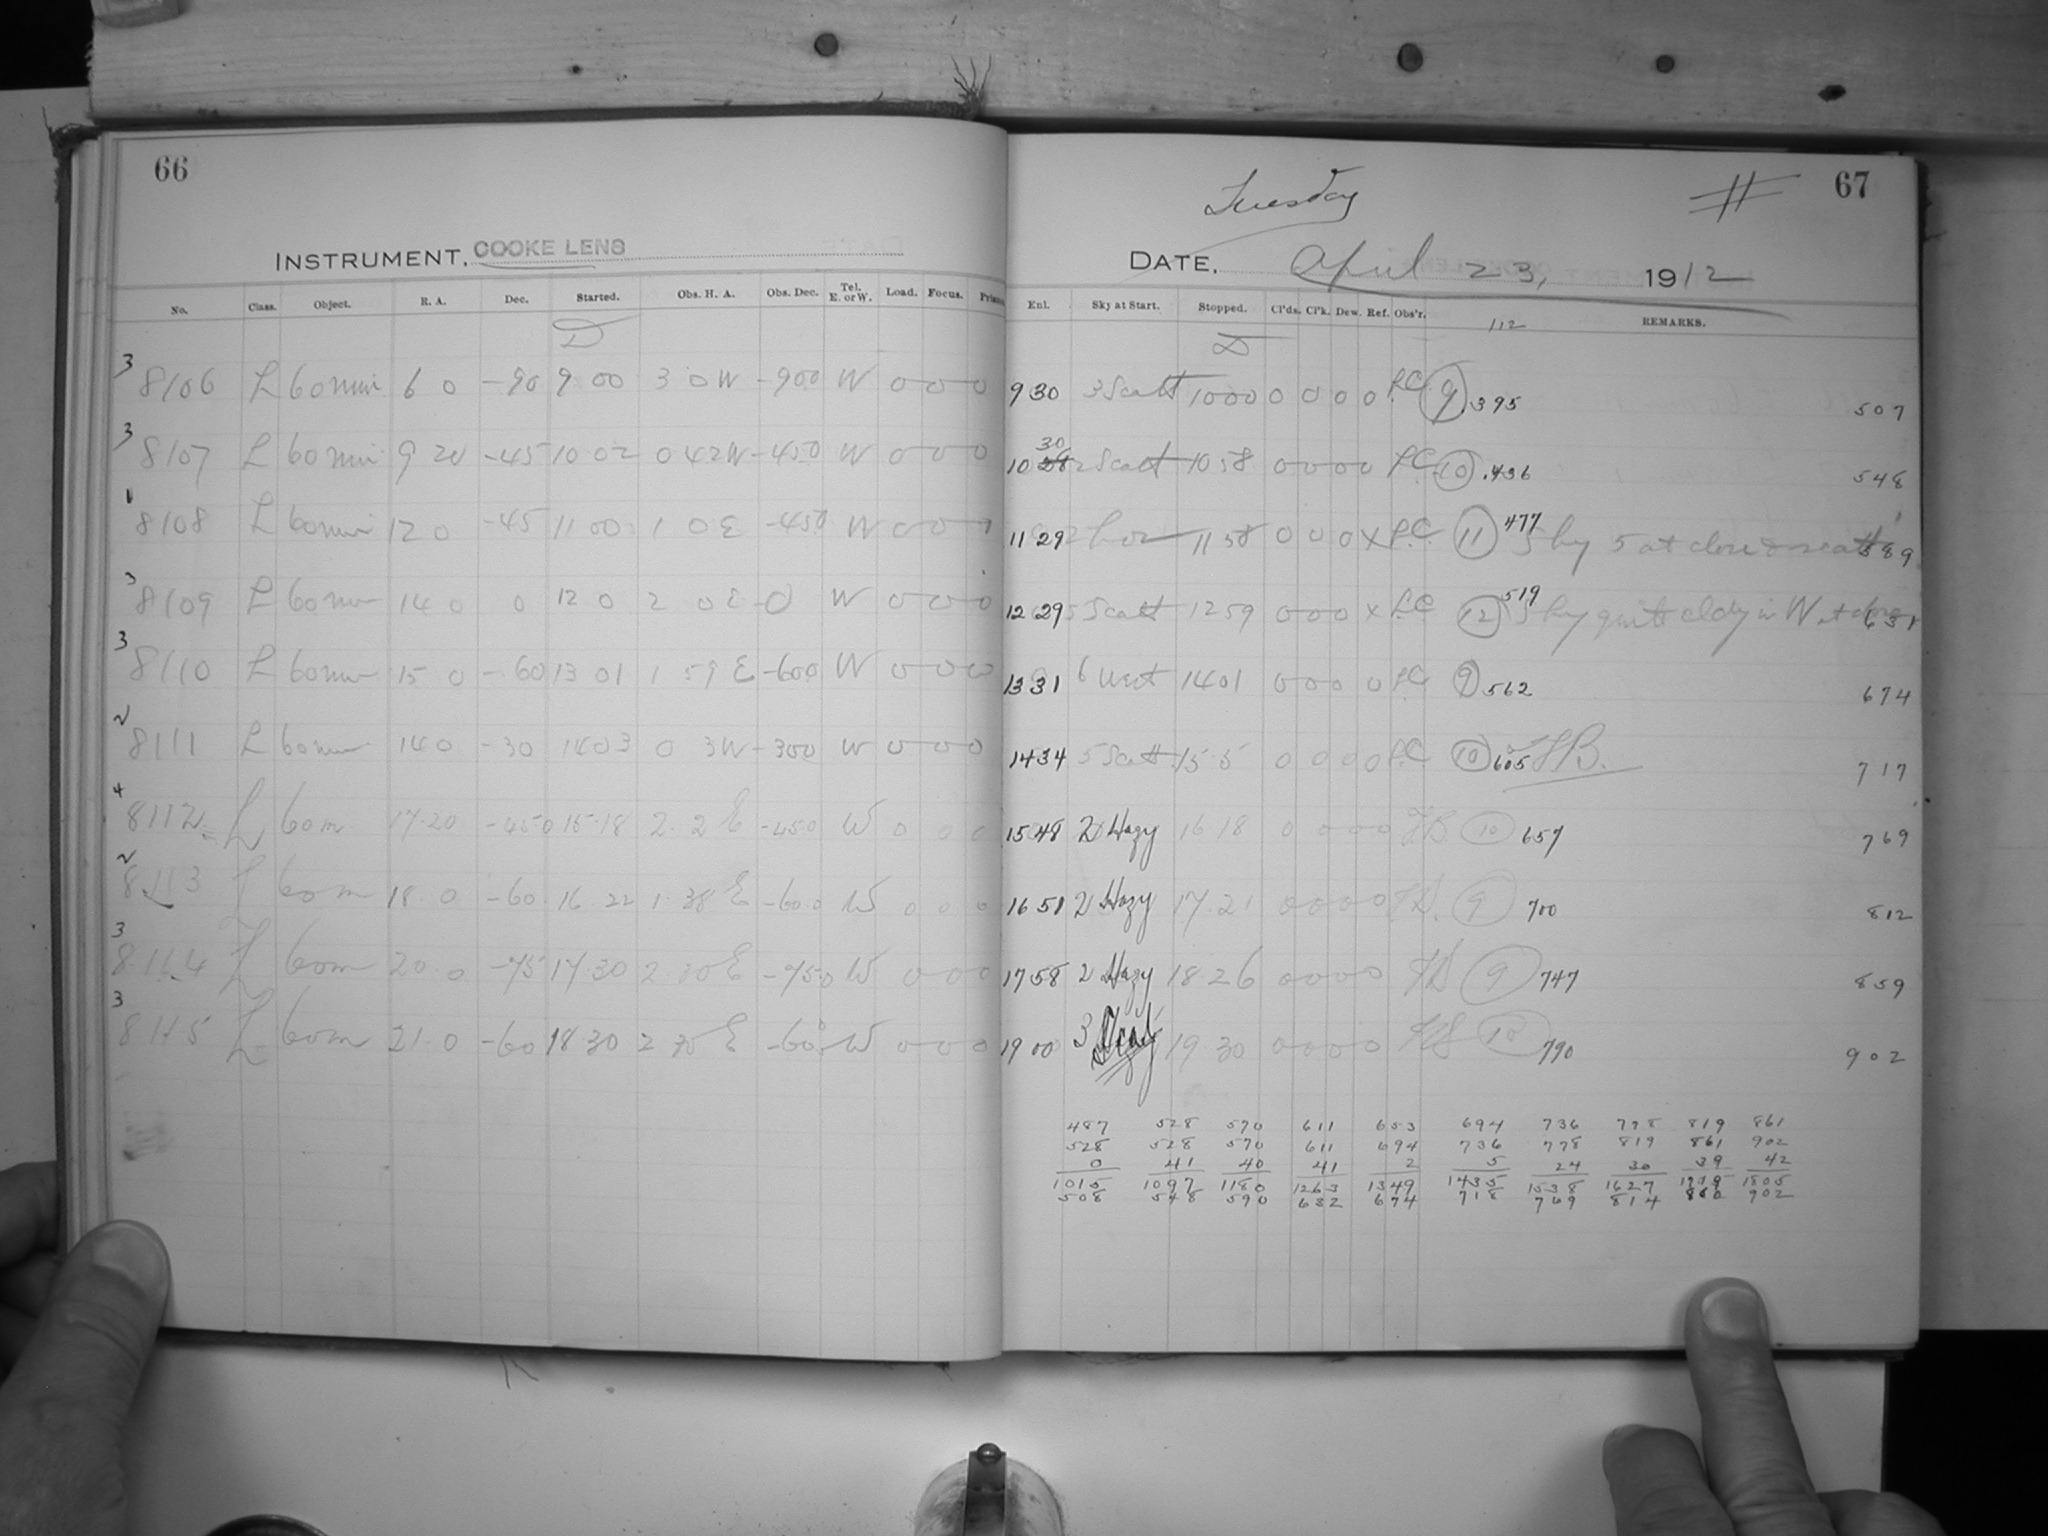 66
INSTRUMENT, COOKE LENS
No. Class. Object. R. A. Dec. Started. Obs. H. A. Obs. Dec. Tel. E. or W. Load. Focus.
3 8106 L 60 min 6 0 -90 9 00 3 0 W -900 W 0 0 0
3 8107 L 60 min 9 20 -45 10 02 0 42 W -450 W 0 0 0
8108 L 60 min 12 0 -45 11 00 1 0 E -450 W 0 0
3 8109 L 60 min 14 0 0 12 0 2 0 E 0 W 0 0 0
3 8110 L 60 min 15 0 -60 13 01 1 59 E -600 W 0 0 0
2 8111 L 60 min 14 0 -30 14 03 0 3 W -300 W 0 0 0
4 8112 L 60 m 17.20 -450 15.18 2.2 E -450 W 0 0 0
2 8113 L 60 m 18.0 -60 16.22 1.38 E -600 W 0 0 0
3 8114 L 60 m 20.0 -75 17.30 2.30 E -750 W 0 0 0
3 8115 L 60 m 21.0 -60 18.30 2 30 E -60 W 0 0 0
67
Tuesday
DATE, April 23, 1912
Enl. Sky at Start. Stopped. Cl'ds. Cl'k. Dew. Ref. Obs'r. 112 REMARKS.
9 30 3 Scatt 10 00 0 0 0 0 L.C. 9 .395 507
30
10 28 2 Scatt 10 58 0 0 0 0 L.C. 10 .436 548
11 29 2 hor 11 58 0 0 0 X L.C. 11 477 Sky 5 at close & scatt 589
12 29 5 Scatt 12 59 0 0 0 X L.C. 12 519 Sky quite cldy in W at close 631
13 31 6 West 14 01 0 0 0 0 L.C. 9 562 674
14 34 5 Scatt 15.5 0 0 0 0 L.C. 10 605 717
15 48 2 Hazy 16 18 0 0 0 0 10 657 769
16 51 2 Hazy 17.21 0 0 0 0 9 700 812
17 58 2 Hazy 18.26 0 0 0 0 9 747 859
19 00 3 19.30 0 0 0 0 10 790 902
487 528 570 611 653 694 736 778 819 861
528 528 570 611 694 736 778 819 861 902
0 41 40 41 2 5 24 30 39 42
1015 1097 1180 1263 1349 1435 1538 1627 1719 1805
508 548 590 632 674 718 769 814 860 902